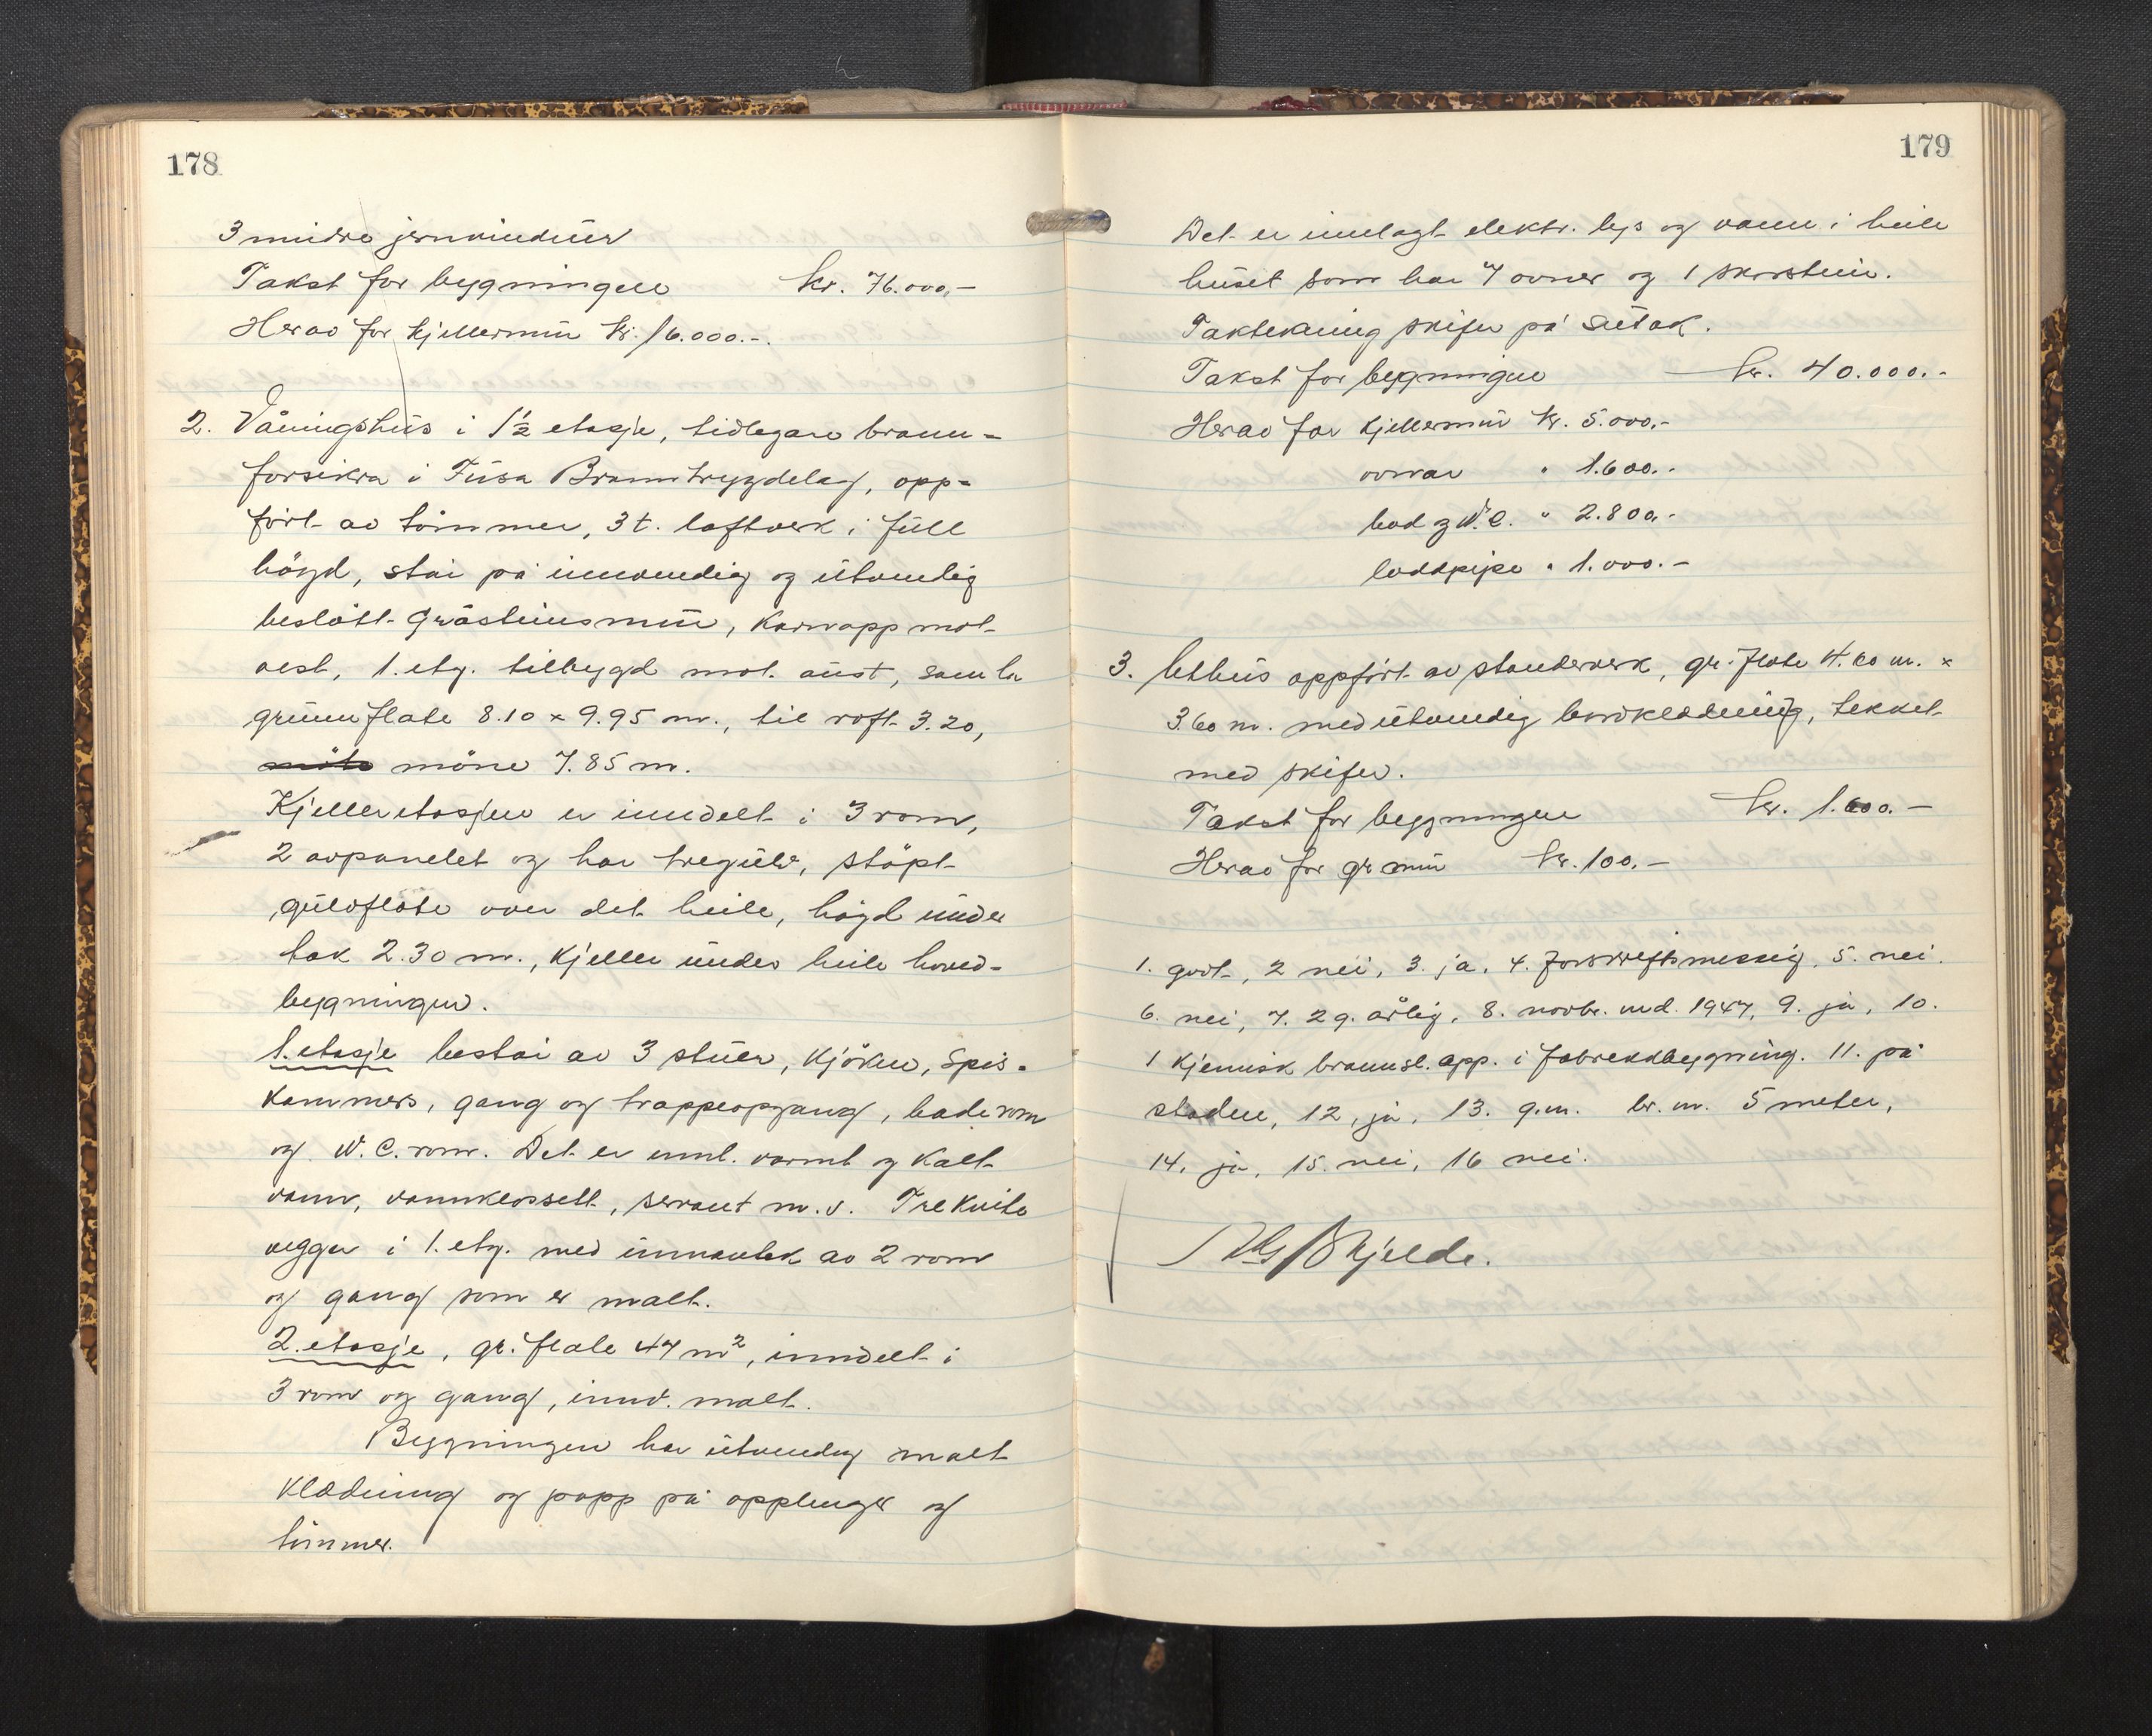 178
3 mindre jernvinduer
Takst for bygningen kr. 76.000,-
Herav for kjellermur kr. 16.000.-.
2. Våningshus i 1½ etasje, tidlegare brann-
forsikra i Fusa Branntrygdelag, opp-
ført av tømmer, 3 t. laftverk i full
høgd, står på innvendig og utvendig
beslått gråsteinsmur, karnapp mot
vest, 1. etg. tilbygd mot aust, samla
grunnflate 8.10 x 9.95 m., til raft 3.20,
møne 7.85 m.
Kjelleretasjen er inndelt i 3 rom,
2 avpanelet og har tregulv, støpt
gulvflate over det heile, høgd under
tak 2.30 m., kjeller under heile hoved-
bygningen.
1. etasje består av 3 stuer, kjøken, spis-
kammers, gang og trappeopgang, baderom
og W.C. rom. Det er innl. varmt og kalt
vann, vannklossett, servant m.v. Trekvite
vegger i 1. etg. med unnantak av 2 rom
og gang som er malt.
2. etasje, gr. flate 47 m², inndelt i
3 rom og gang, innv. malt.
Bygningen har utvendig malt
klædning og papp på opplenger og
tømmer.
179
Det er innlagt elektr. lys og vann i heile
huset som har 7 ovner og 1 skorstein.
Taktekning skifer på sutak.
Takst for bygningen kr. 40.000.-
Herav for kjellermur kr. 5.000.-
ovnar " 1.600.-
bad og W.C. " 2.800.-
loddpipe " 1.000.-
3. uthus oppført av standerverk, gr. flate 4.60 m. x
3.60 m. med utvendig bordkledning, tekket
med skifer.
Takst for bygningen kr. 1.600.-
Herav for gr mur kr. 100.-
1. godt, 2 nei, 3. ja, 4. forskriftsmessig, 5. nei.
6. nei, 7. 2 g. årlig, 8. novbr. md. 1947, 9. ja, 10.
1 kjemisk brannsl. app. i fabrikkbygning. 11. på
staden, 12, ja, 13. g.m. br. m. 5 meter,
14, ja, 15. nei, 16 nei.
Skjelde.